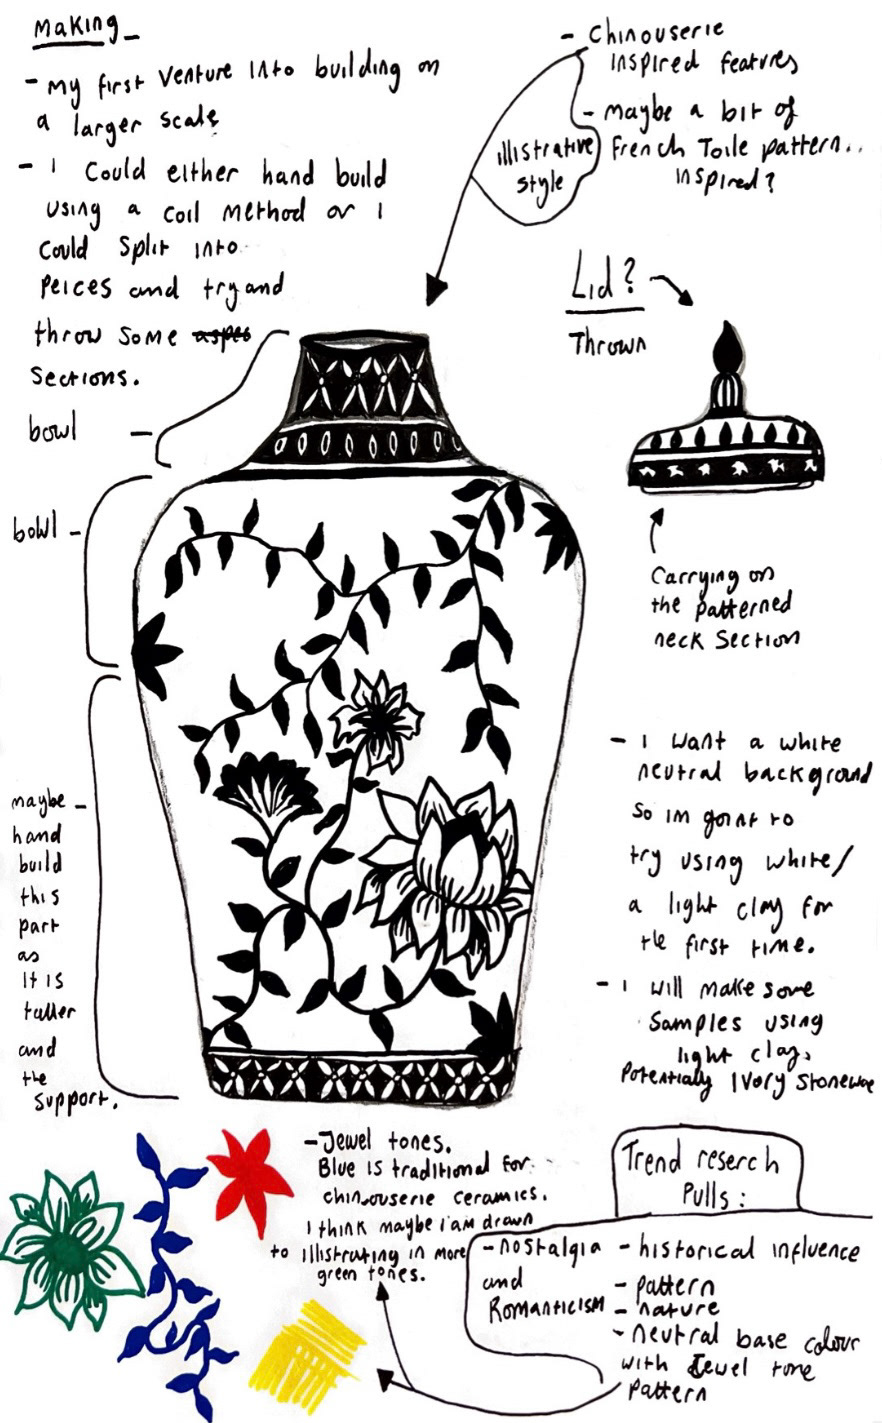 Making
- My first venture into building on
a larger scale
- I could either hand build
using a coil method or I
could split into
peices and try and
throw some aspes
sections.
bowl -
bowl -
maybe -
hand
build
this
part
as
it is
taller
and
the
support.
- Chinouserie
inspired features
- Maybe a bit of
French Toile pattern..
inspired?
illistrative
style
Lid?
Thrown
Carrying on
the patterned
neck section
- I want a white
neutral background
so im goint to
try using white/
a light clay for
the first time.
- I will make some
samples using
light clay,
Potentially Ivory Stoneware
- Jewel tones.
Blue is traditional for
chinouserie ceramics.
I think maybe i am drawn
to illistrating in more
green tones.
Trend reserch
Pulls:
- nostalgia
and
Romanticism
- historical influence
- pattern
- nature
- neutral base colour
with Jewel tone
pattern